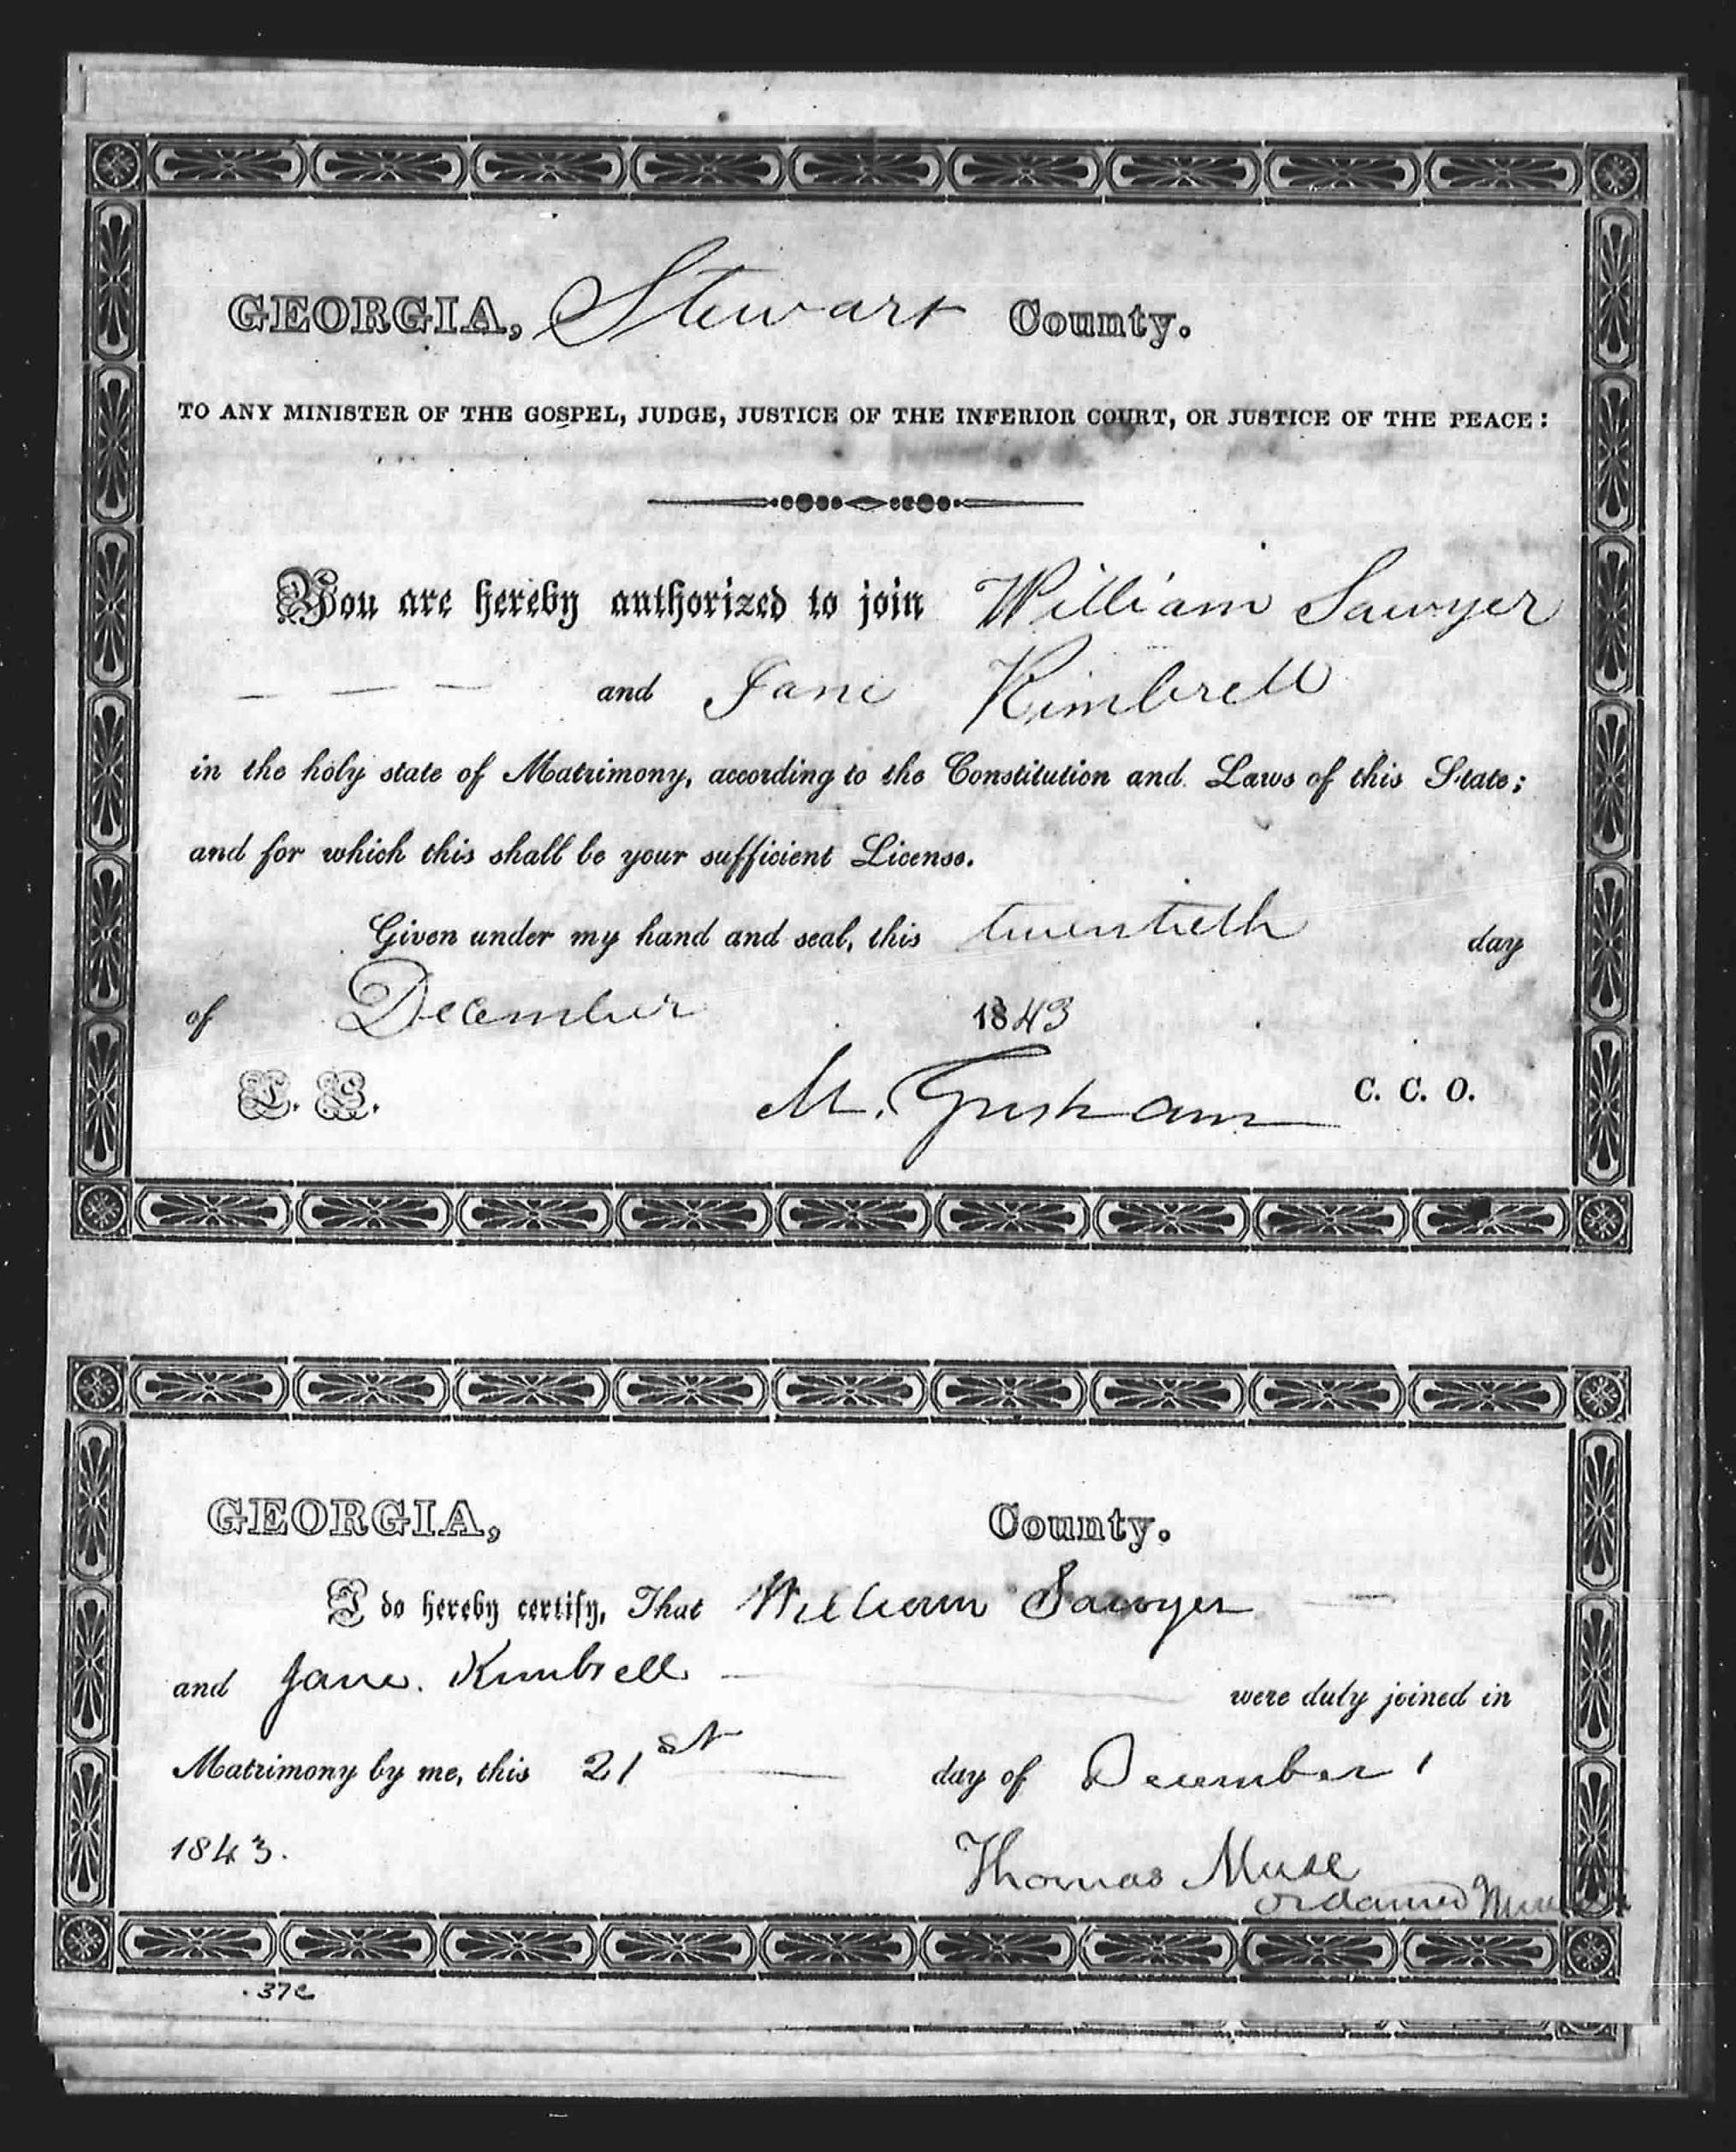 GEORGIA, Stewart County.
TO ANY MINISTER OF THE GOSPEL, JUDGE, JUSTICE OF THE INFERIOR COURT, OR JUSTICE OF THE PEACE:
You are hereby authorized to join William Sawyer
— — — and Jane Kimbrell
in the holy state of Matrimony, according to the Constitution and Laws of this State;
and for which this shall be your sufficient License.
Given under my hand and seal, this twentieth day
of December 1843
L. S. M. Gresham C. C. O.
GEORGIA, County.
I do hereby certify, That William Sawyer —
and Jane. Kimbrell — were duly joined in
Matrimony by me, this 21st — day of December
1843.
Thomas Muse
ordained